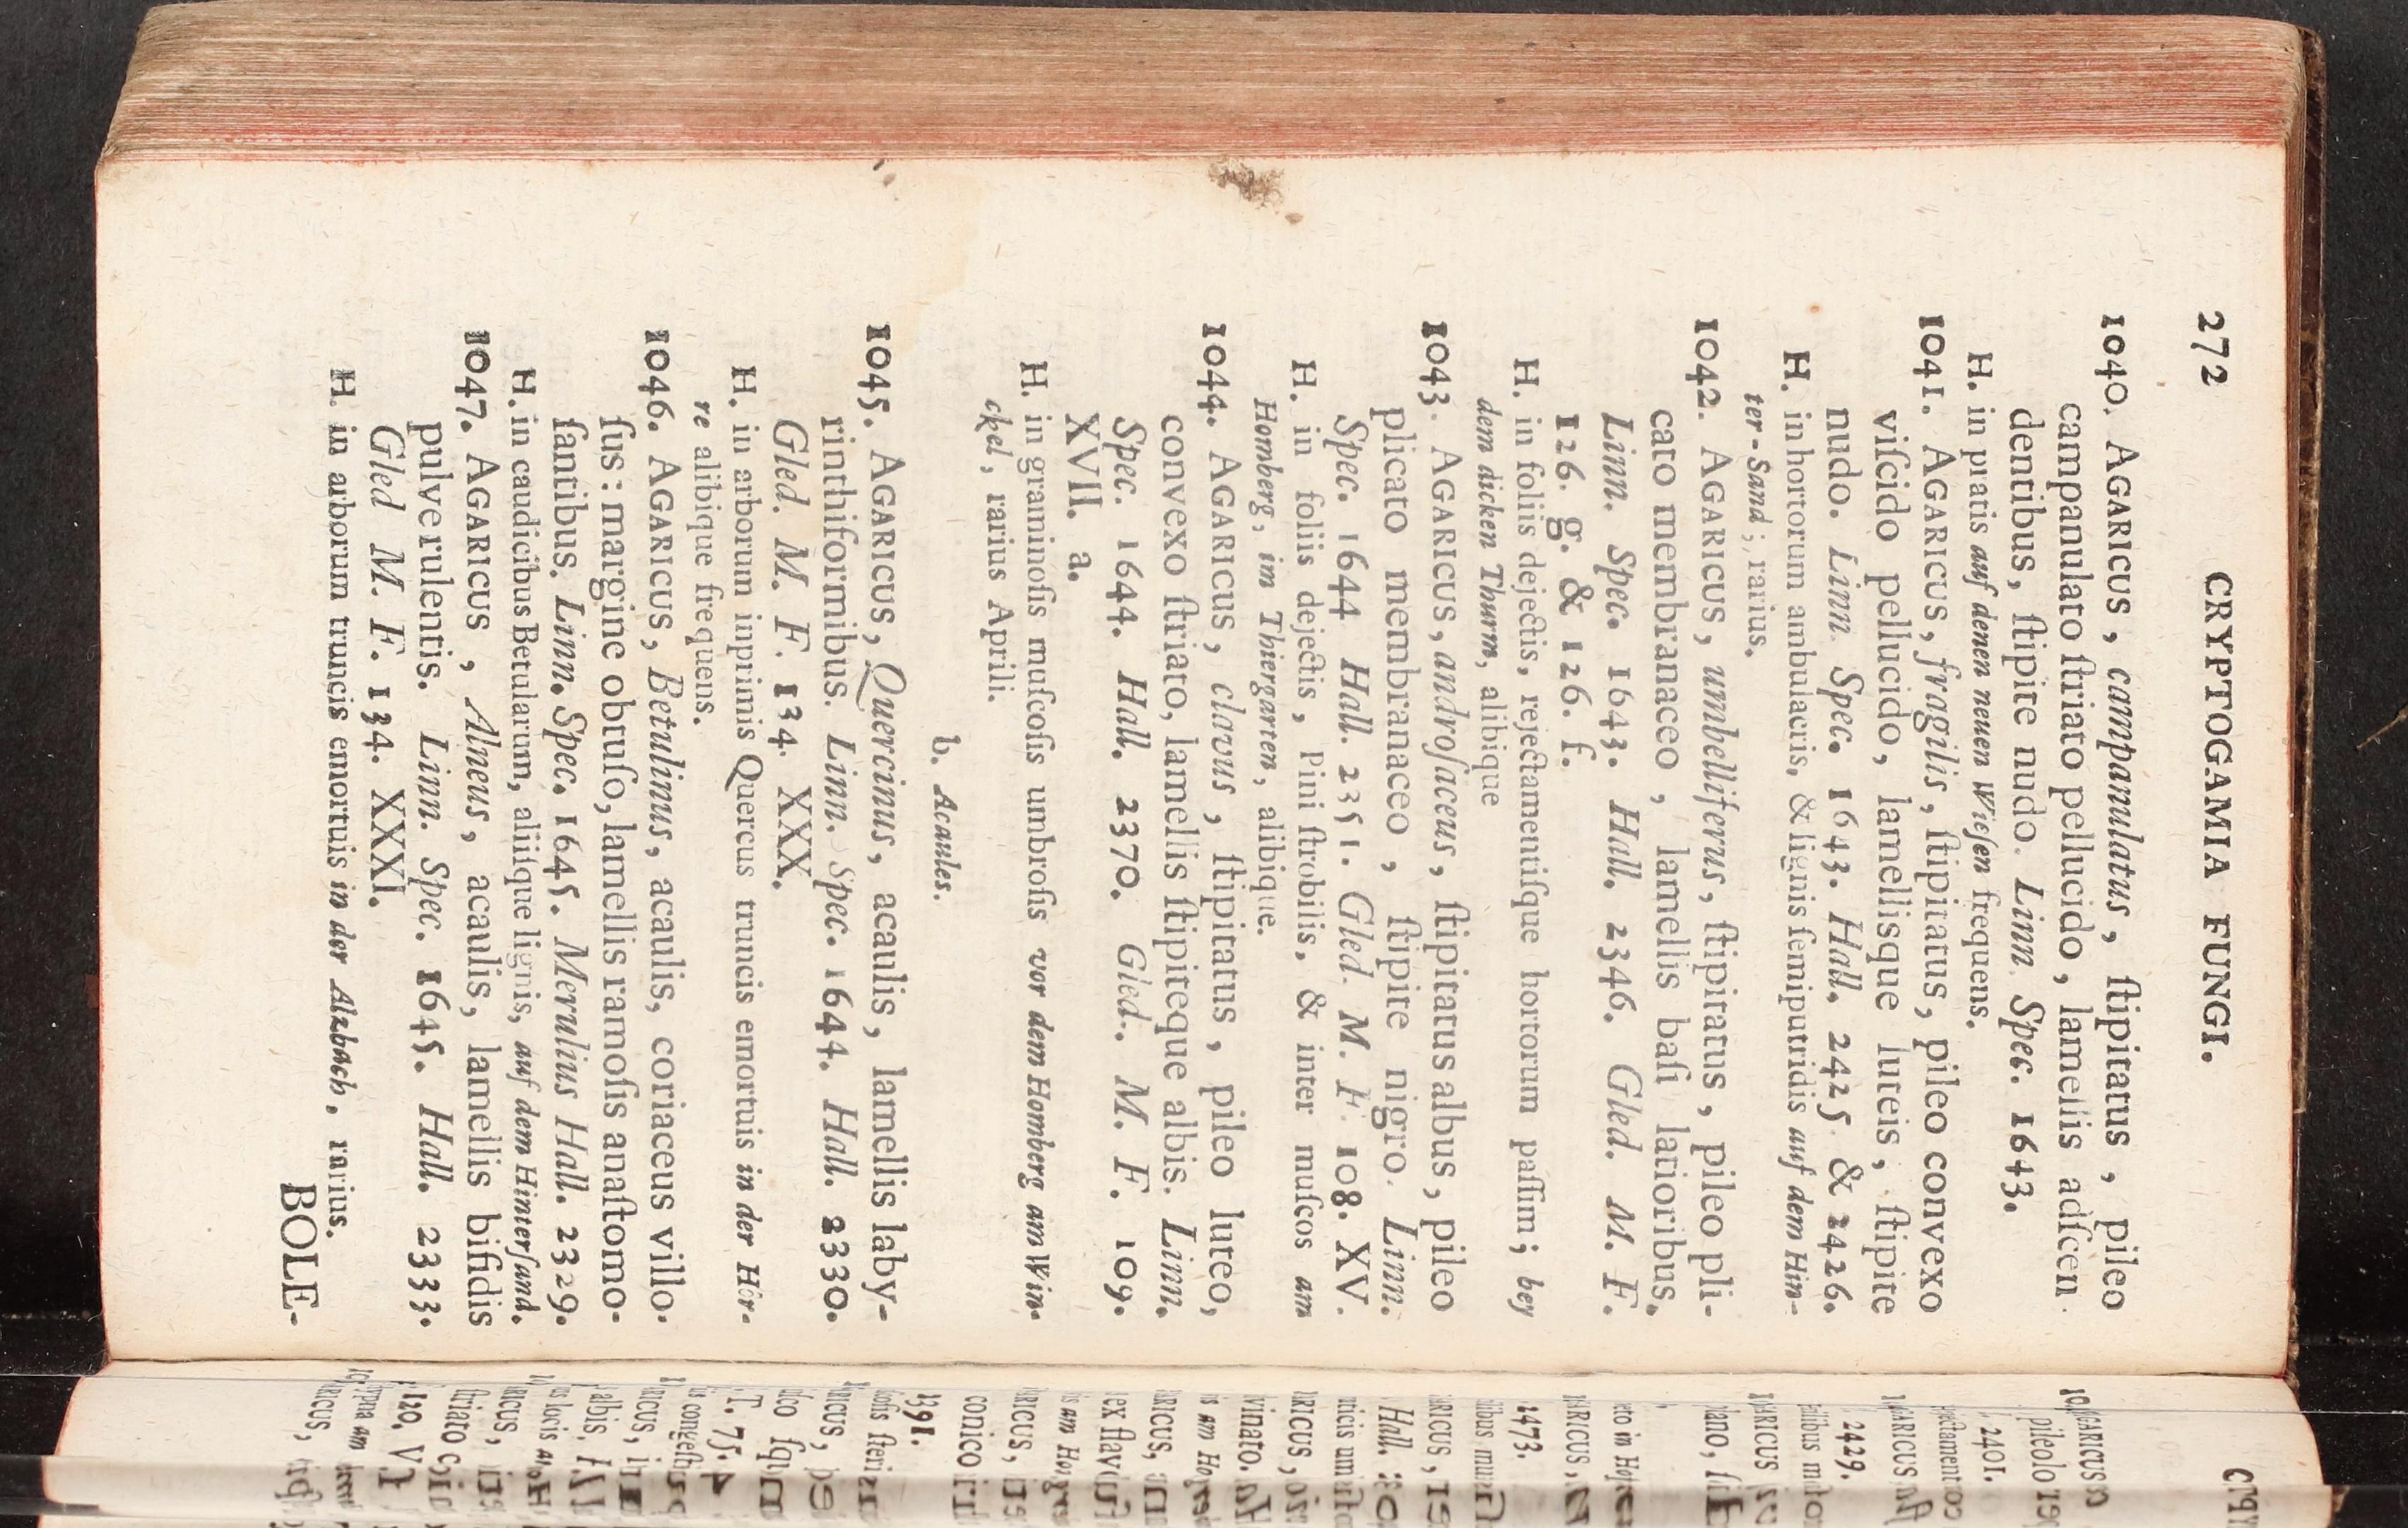 272 CRYPTOGAMIA FUNGI.
1040. AGARICUS, campanulatus, ſtipitatus, pileo
campanulato ſtriato pellucido, lamellis adſcen-
dentibus, ſtipite nudo. Linn Spec. 1643.
H. in pratis auf denen neuen Wieſen frequens.
1041. AGARICUS, fragilis, ſtipitatus, pileo convexo
viſcido pellucido, lamellisque luteis, ſtipite
nudo. Linn Spec. 1643. Hall. 2425 & 2426.
H. in hortorum ambulacris, & lignis ſemiputridis auf dem Hin-
ter-Sand; rarius.
1042. AGARICUS, umbelliferus, ſtipitatus, pileo pli-
cato membranaceo, lamellis baſi latioribus.
Linn. Spec. 1643. Hall. 2346. Gled. M. F.
126. g. & 126. f.
H. in foliis dejectis, rejectamentiſque hortorum paſſim; bey
dem dicken Thurm, alibique
1043. AGARICUS, androſaceus, ſtipitatus albus, pileo
plicato membranaceo, ſtipite nigro. Linn.
Spec. 1644 Hall. 2351. Gled. M. F. 108. XV.
H. in foliis dejectis, Pini ſtrobilis, & inter muſcos am
Homberg, im Thiergarten, alibique.
1044. AGARICUS, clavus, ſtipitatus, pileo luteo,
convexo ſtriato, lamellis ſtipiteque albis. Linn.
Spec. 1644. Hall. 2370. Gled. M. F. 109.
XVII. a.
H. in graminoſis muſcoſis umbroſis vor dem Homberg am Win-
ckel, rarius Aprili.
b. Acaules.
1045. AGARICUS, Quercinus, acaulis, lamellis laby-
rinthiformibus. Linn. Spec. 1644. Hall. 2330.
Gled. M. F. 134. XXX.
H. in arborum inprimis Quercus truncis emortuis in der Hör-
re alibique frequens.
1046. AGARICUS, Betulinus, acaulis, coriaceus villo-
ſus: margine obtuſo, lamellis ramoſis anaſtomo-
ſantibus. Linn. Spec. 1645. Merulius Hall. 2329.
H. in caudicibus Betularum, aliiſque lignis, auf dem Hinterſand.
1047. AGARICUS, Alneus, acaulis, lamellis bifidis
pulverulentis. Linn. Spec. 1645. Hall. 2333.
Gled M. F. 134. XXXI.
H. in arborum truncis emortuis in der Alzbach, rarius.
BOLE-